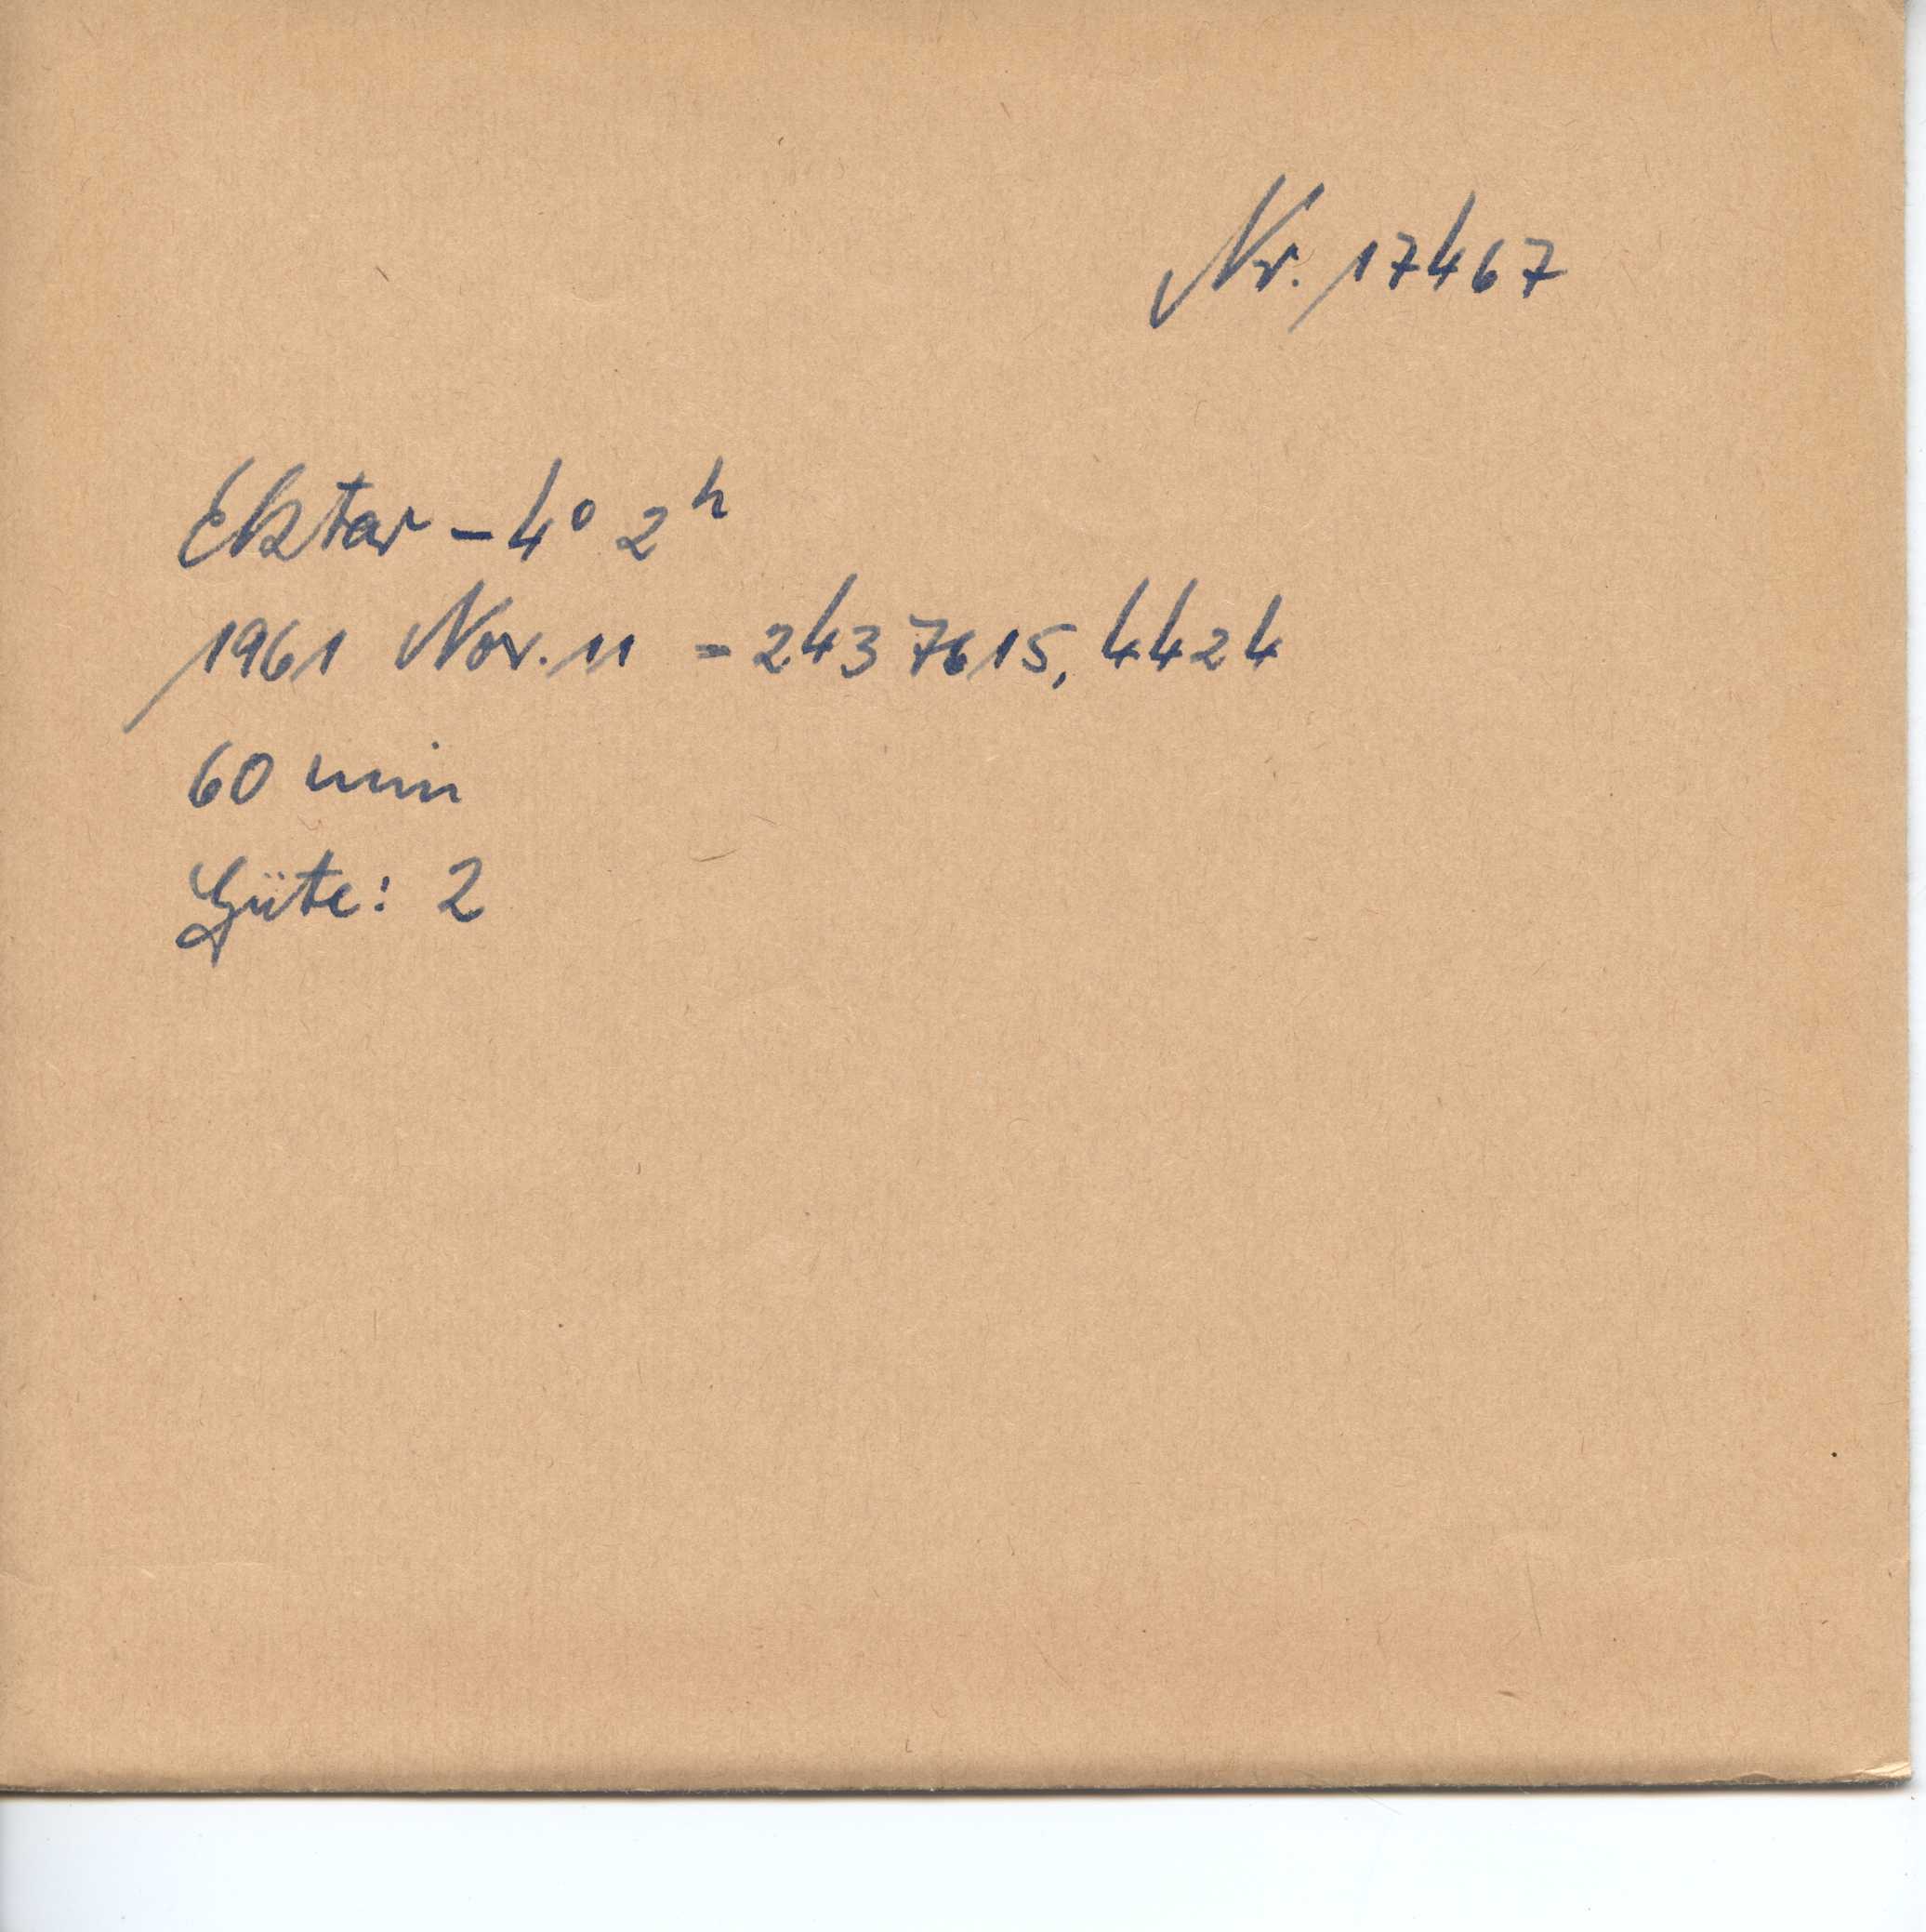 Nr. 17467
Ektar -4° 2ʰ
1961 Nov. 11 = 2437615,4424
60 min
Güte: 2